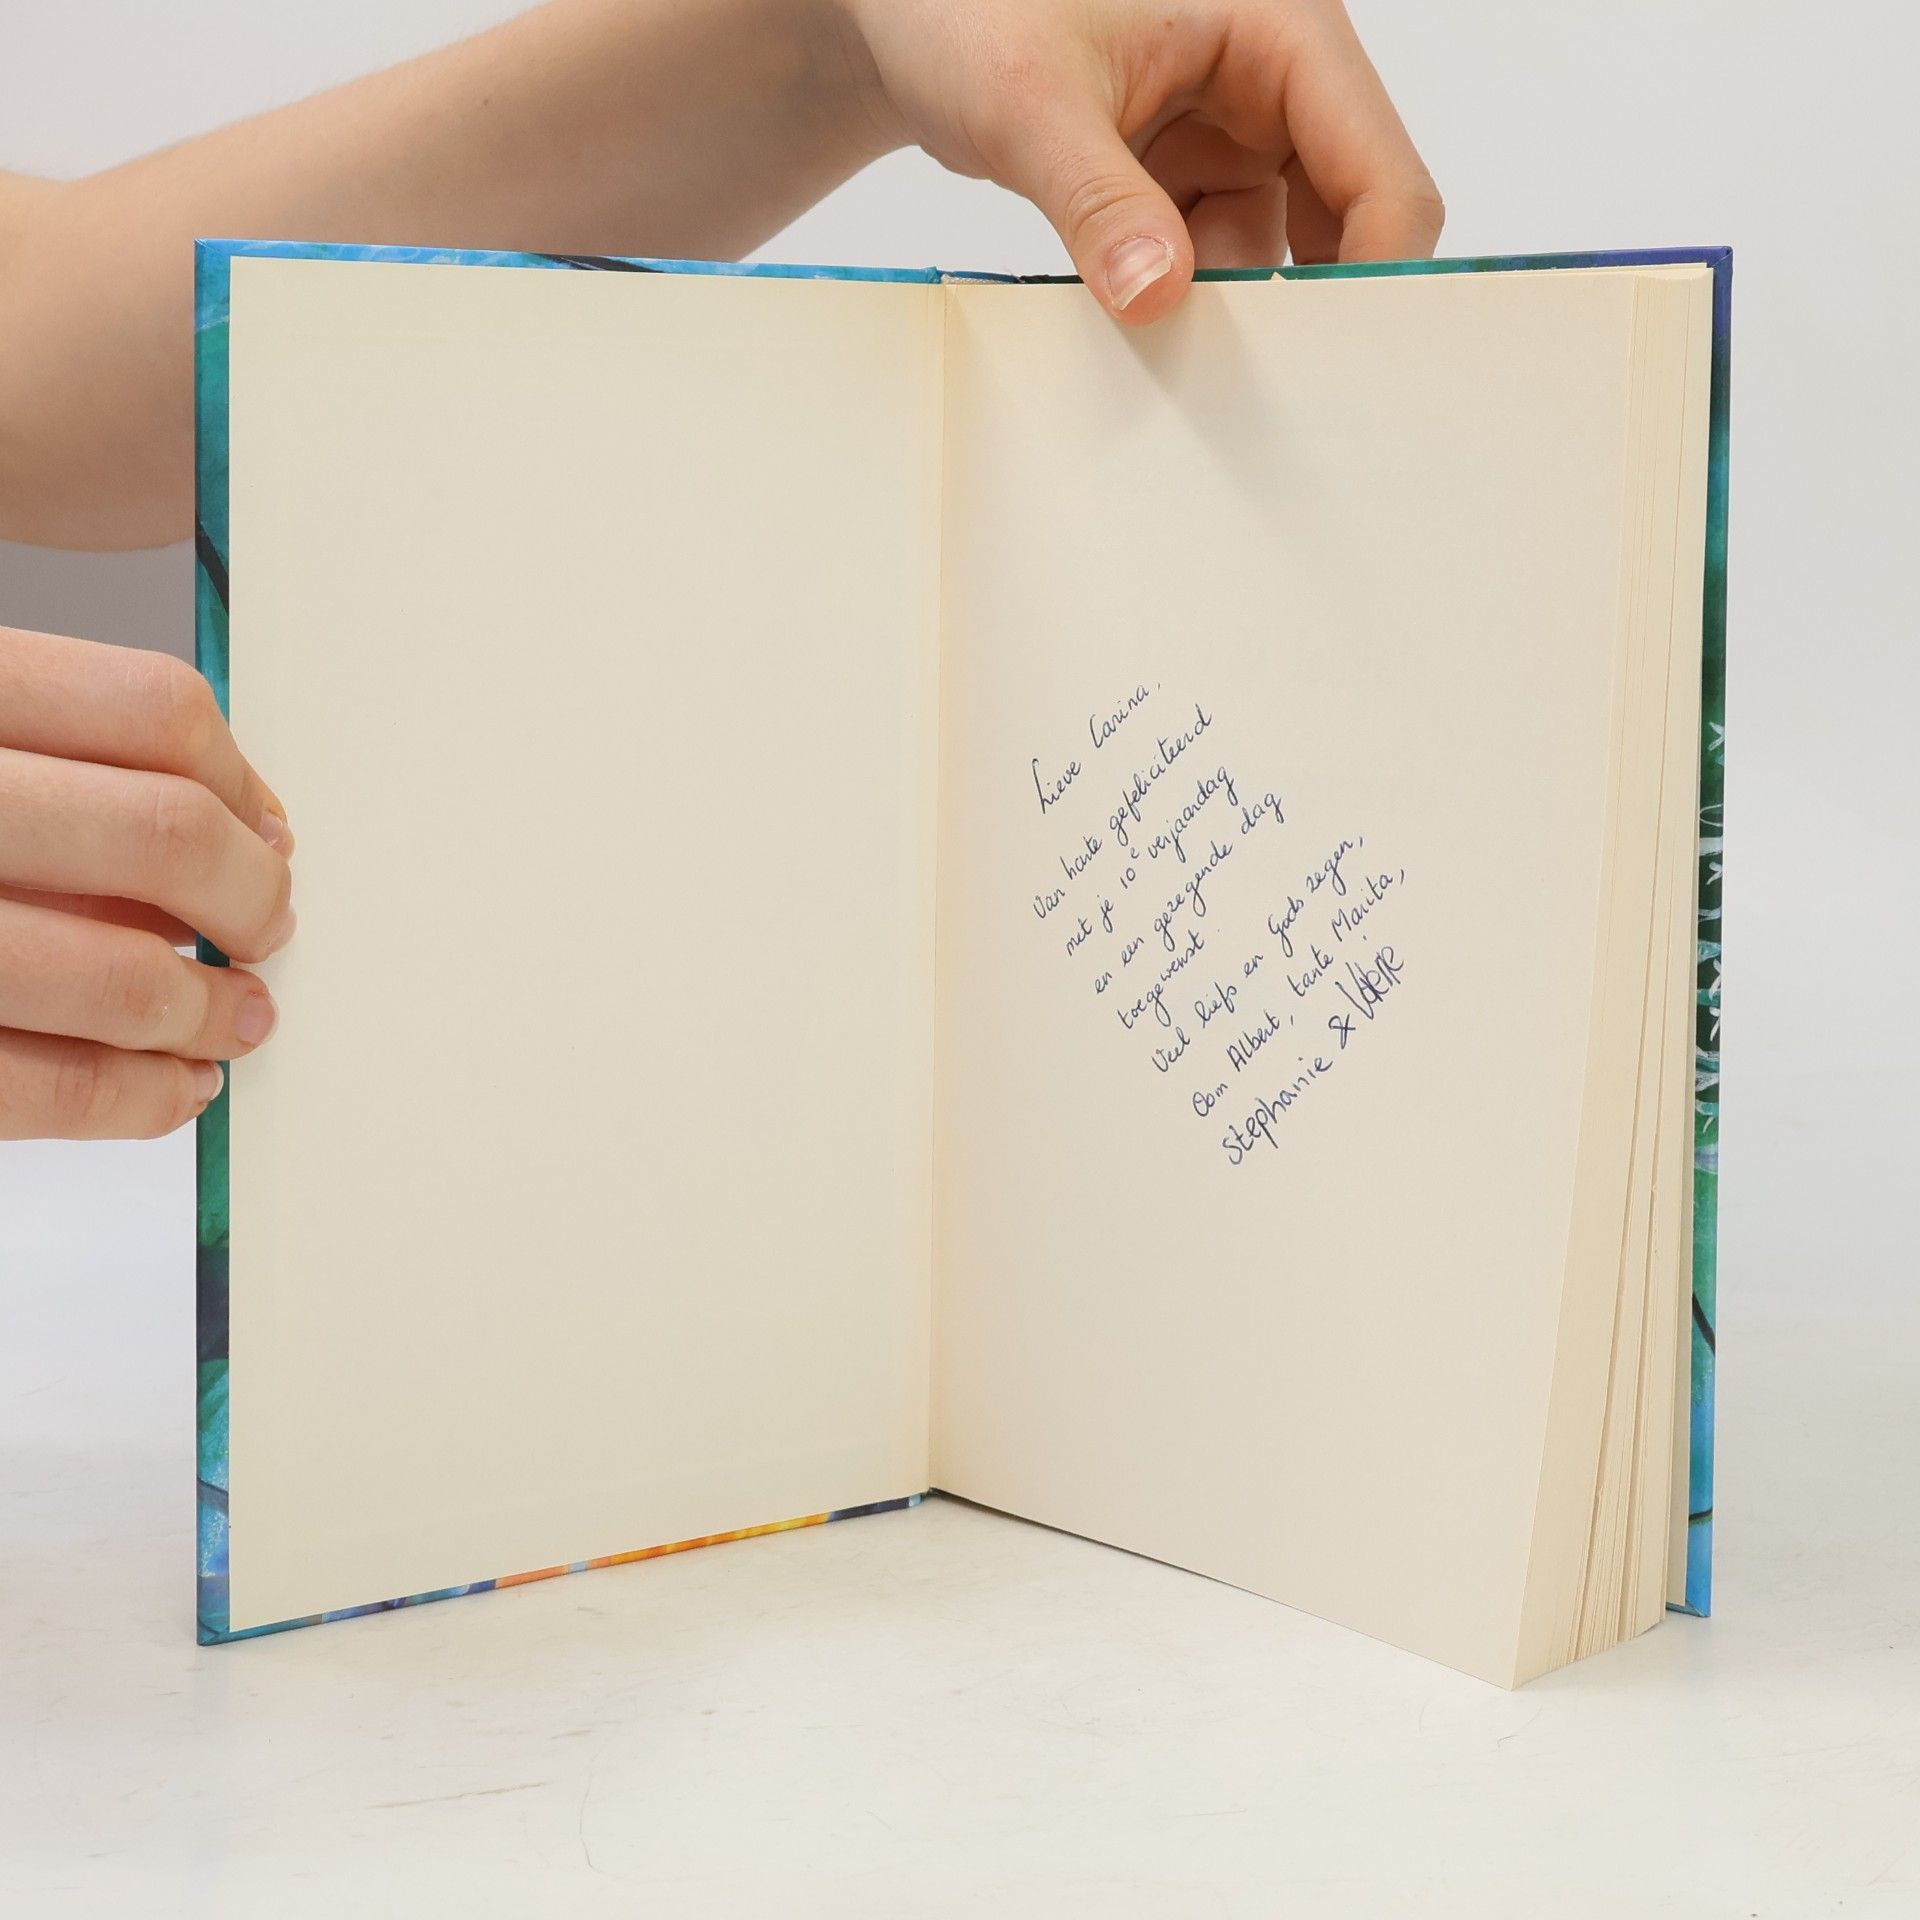 Lieve Carina,
Van harte gefeliciteerd
met je 10e verjaardag
en een gezegende dag
toegewenst.
Veel liefs en Gods zegen,
Oom Albert, tante Marita,
Stephanie &